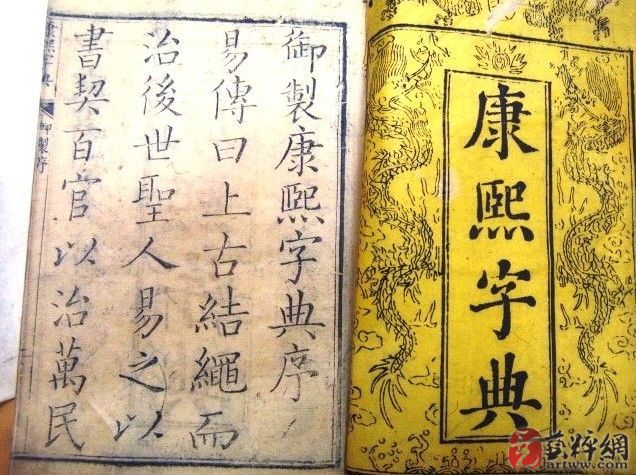 康熙字典
御製康熙字典序
易傳曰上古結繩而
治後世聖人易之以
書契百官以治萬民
康熙字典
御製序
藝粹網
artww.com